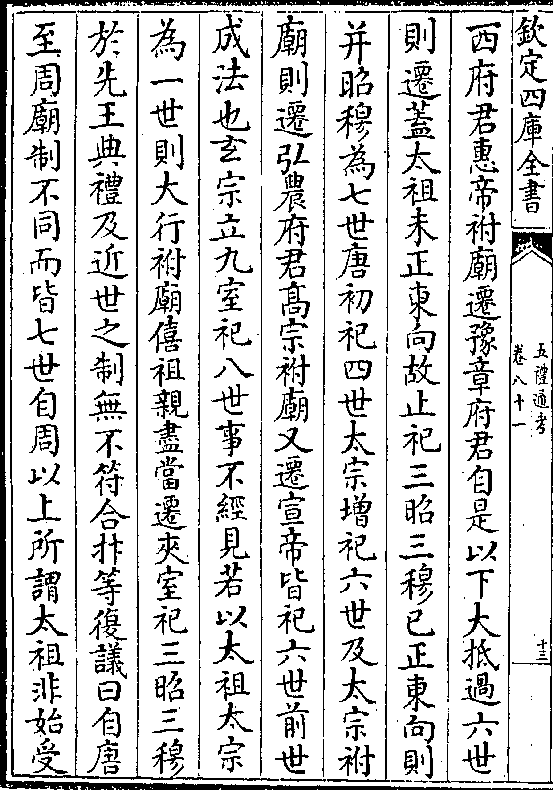 欽定四庫全書
五禮通考
卷八十一
十三
西府君惠帝祔廟遷豫章府君自是以下大抵過六世
則遷蓋太祖未正東向故止祀三昭三穆已正東向則
并昭穆為七世唐初祀四世太宗增祀六世及太宗祔
廟則遷弘農府君高宗祔廟又遷宣帝皆祀六世前世
成法也玄宗立九室祀八世事不經見若以太祖太宗
為一世則大行祔廟僖祖親盡當遷夾室祀三昭三穆
於先王典禮及近世之制無不符合抃等復議曰自唐
至周廟制不同而皆七世自周以上所謂太祖非始受